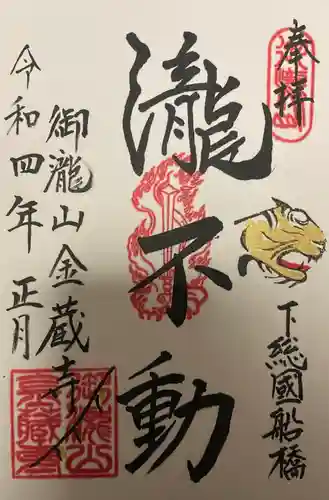 奉拝
下総國船橋
瀧不動
御瀧山金蔵寺
令和四年正月